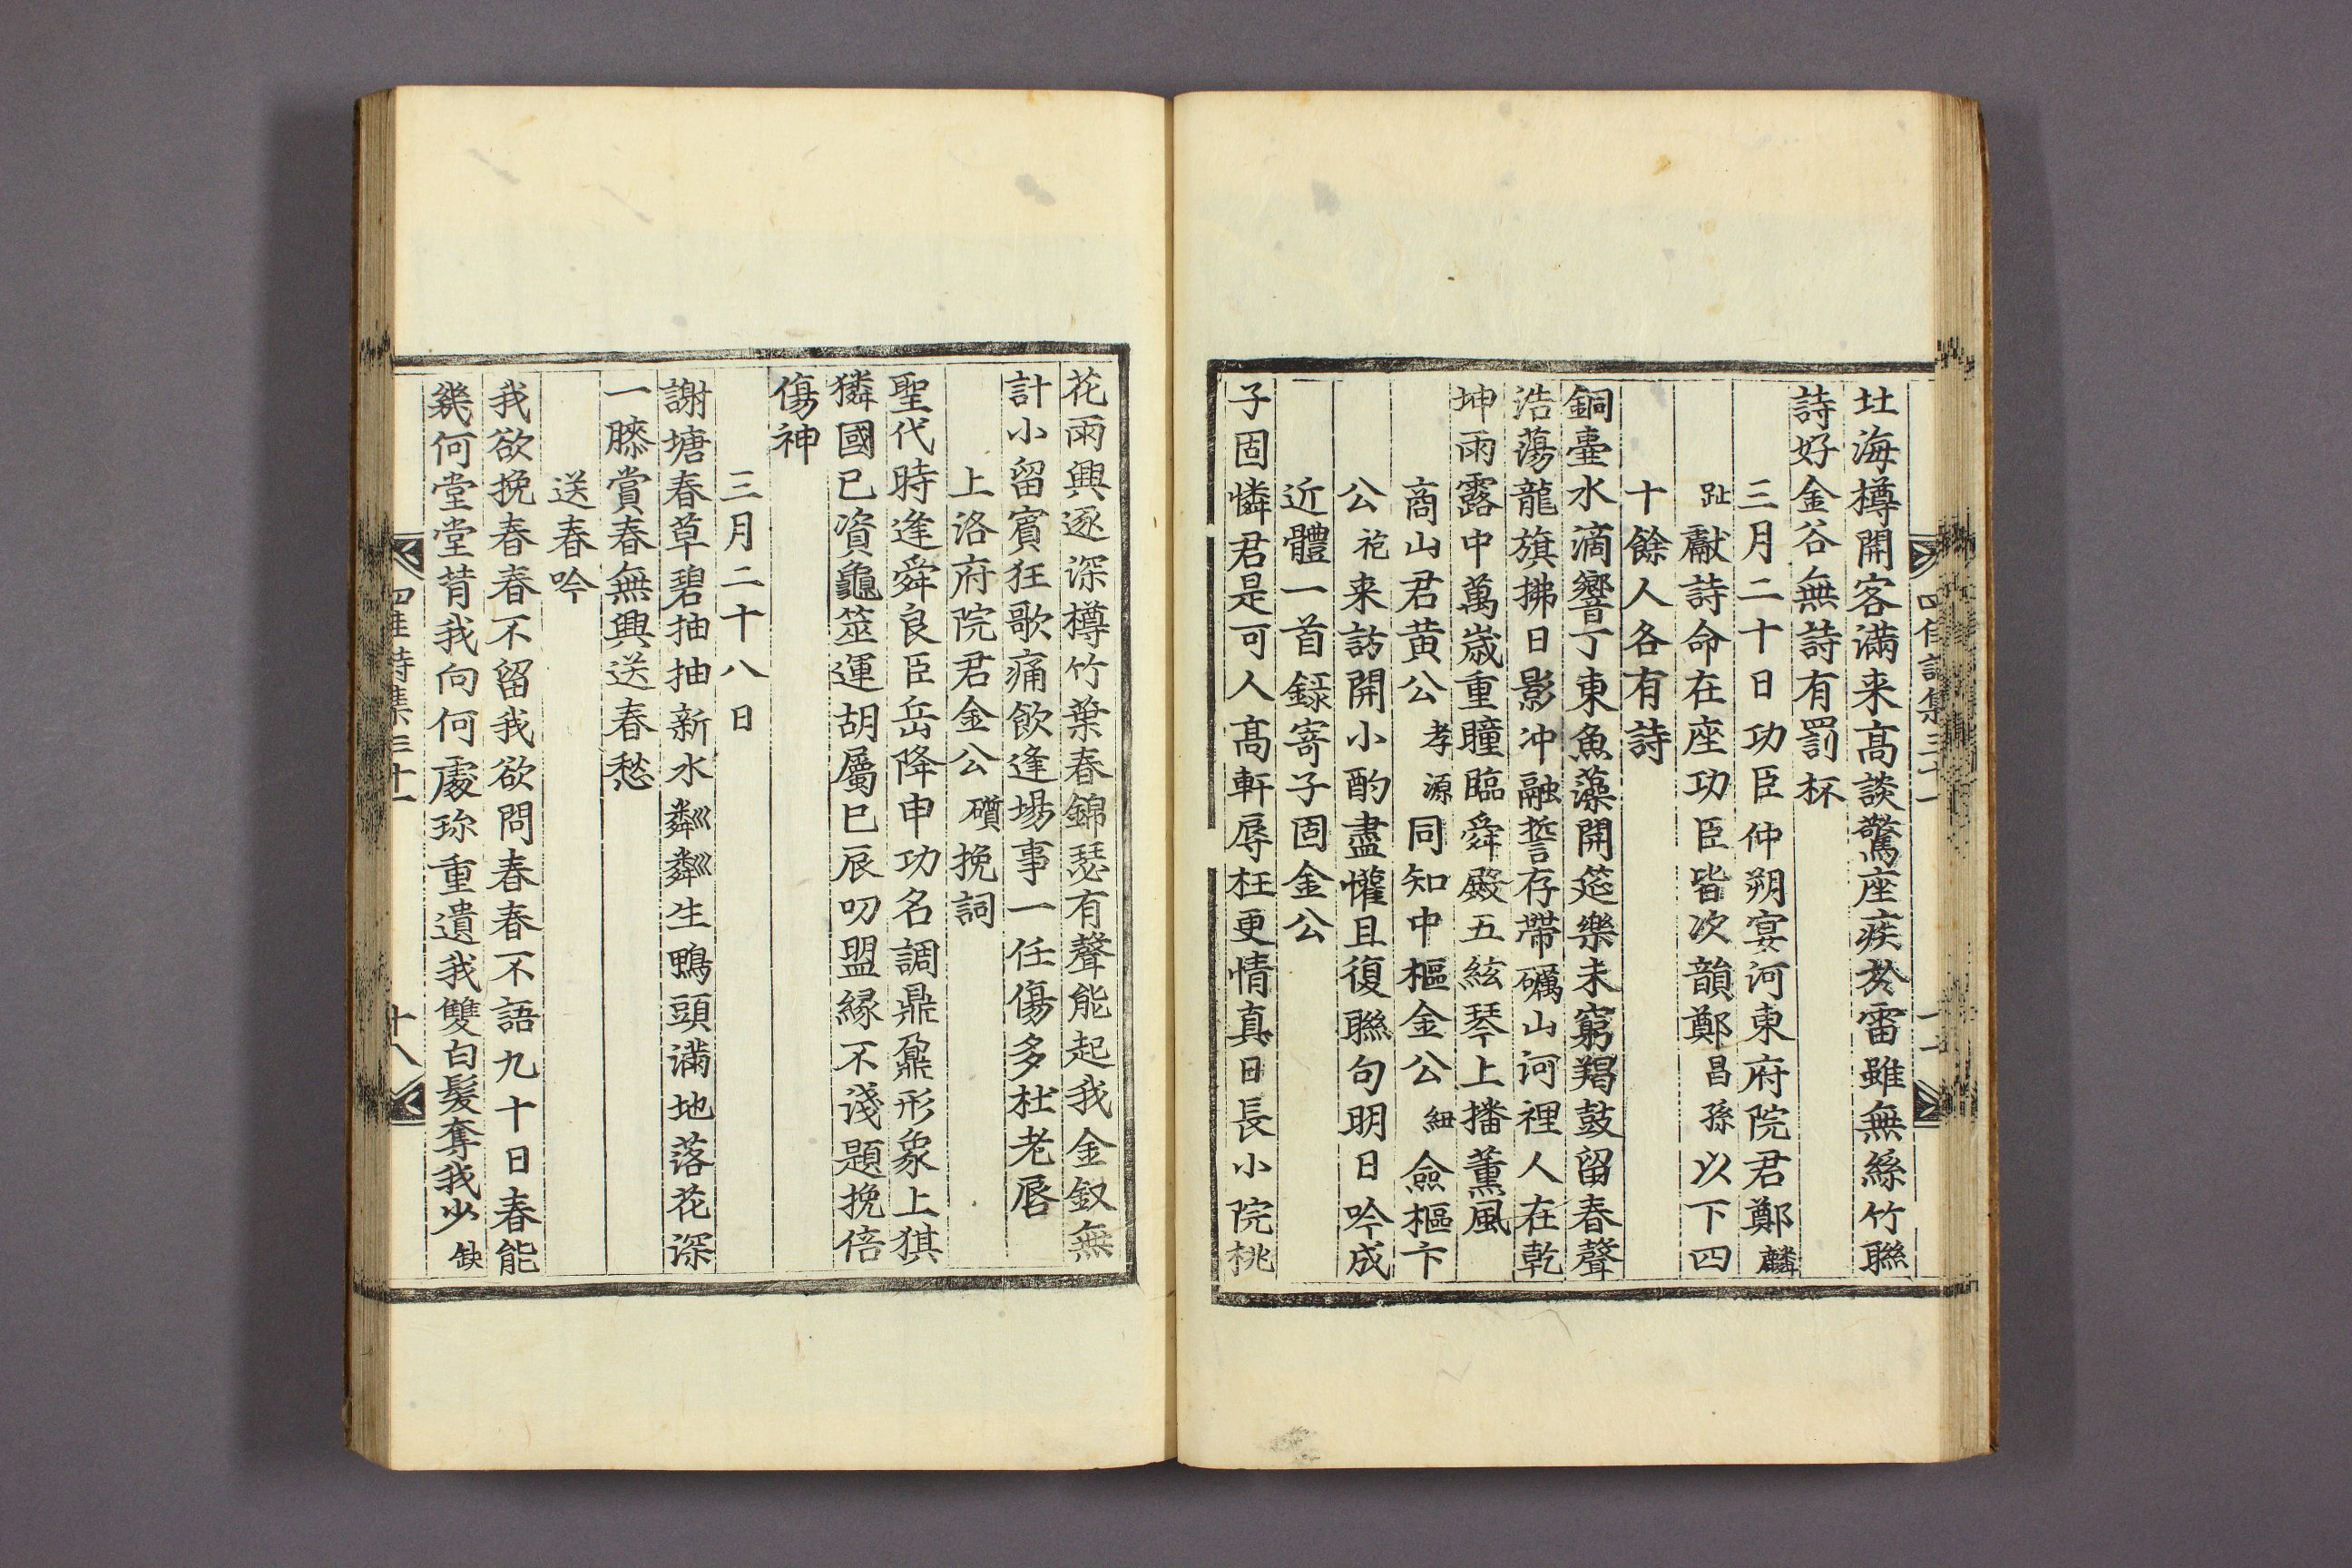 壯海樽開客滿来髙談驚座疾於雷雖無絲竹聯
詩好金谷無詩有罰杯
三月二十日功臣仲朔宴河東府院君鄭麟
趾獻詩命在座功臣皆次韻鄭昌孫以下四
十餘人各有詩
銅臺水滴響丁東魚藻開筵樂未窮羯鼓留春聲
浩蕩龍旗拂日影冲融誓存帶礪山河裡人在乾
坤雨露中萬歲重瞳臨舜殿五絃琴上播薰風
商山君黄公孝源同知中樞金公紐僉樞卞
公袍来訪開小酌盡懽且復聮句明日吟成
近體一首録寄子固金公
子固憐君是可人髙軒辱枉更情真日長小院桃
花雨興逐深樽竹葉春錦瑟有聲能起我金釵無
計小留賔狂歌痛飲逢場事一任傷多杜老唇
上洛府院君金公礩挽詞
聖代時逢舜良臣岳降申功名調鼎鼐形象上猉
獜國已資龜筮運胡屬巳辰叨盟縁不淺題挽倍
傷神
三月二十八日
謝塘春草碧抽抽新水粼粼生鴨頭滿地落花深
一膝賞春無興送春愁
送春吟
我欲挽春春不留我欲問春春不語九十日春能
幾何堂堂背我向何處珎重遺我雙白髮奪我少缺
四佳詩集三十一
十八